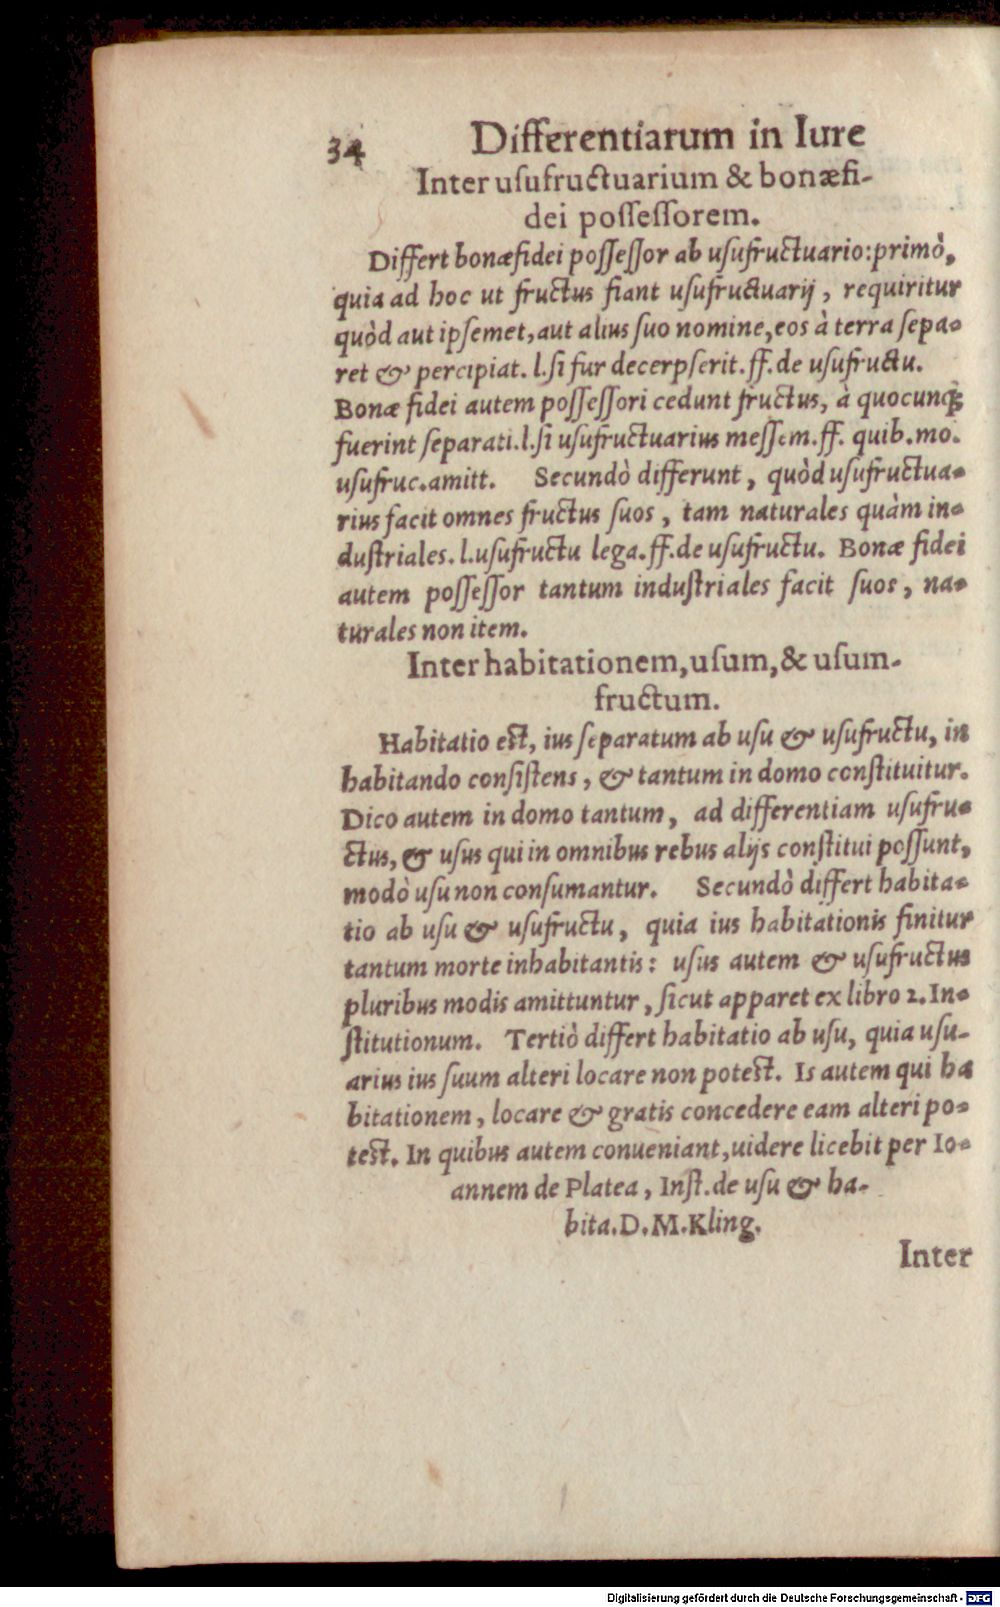 34 Differentiarum in Iure
Inter uſufructuarium & bonæfi-
dei poſſeſſorem.
Differt bonæfidei poſſeſſor ab uſufructuario: primò,
quia ad hoc ut fructus fiant uſufructuarij, requiritur
quòd aut ipſemet, aut alius ſuo nomine, eos à terra ſepa-
ret & percipiat. l. ſi fur decerpſerit. ff. de uſufructu.
Bonæ fidei autem poſſeſſori cedunt fructus, à quocunq;
fuerint ſeparati. l. ſi uſufructuarius meſſem. ff. quib. mo.
uſufruc. amitt. Secundò differunt, quòd uſufructua-
rius facit omnes fructus ſuos, tam naturales quàm in-
duſtriales. l. uſufructu lega. ff. de uſufructu. Bonæ fidei
autem poſſeſſor tantum induſtriales facit ſuos, na-
turales non item.
Inter habitationem, uſum, & uſum-
fructum.
Habitatio eſt, ius ſeparatum ab uſu & uſufructu, in
habitando conſiſtens, & tantum in domo conſtituitur.
Dico autem in domo tantum, ad differentiam uſufru-
ctus, & uſus qui in omnibus rebus alijs conſtitui poſſunt,
modò uſu non conſumantur. Secundò differt habita-
tio ab uſu & uſufructu, quia ius habitationis finitur
tantum morte inhabitantis: uſus autem & uſufructus
pluribus modis amittuntur, ſicut apparet ex libro 2. In-
ſtitutionum. Tertiò differt habitatio ab uſu, quia uſu-
arius ius ſuum alteri locare non poteſt. Is autem qui ha
bitationem, locare & gratis concedere eam alteri po-
teſt. In quibus autem conueniant, uidere licebit per Io-
annem de Platea, Inſt. de uſu & ha-
bita. D. M. Kling.
Inter
Digitalisierung gefördert durch die Deutsche Forschungsgemeinschaft - DFG